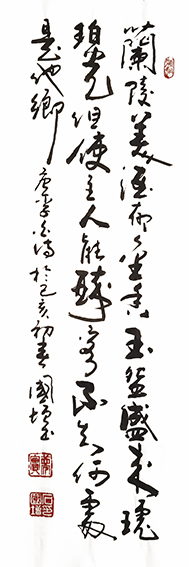 蘭陵美酒鬱金香玉碗盛來琥
珀光但使主人能醉客不知何處
是他鄉
唐李白詩於己亥初春國培書